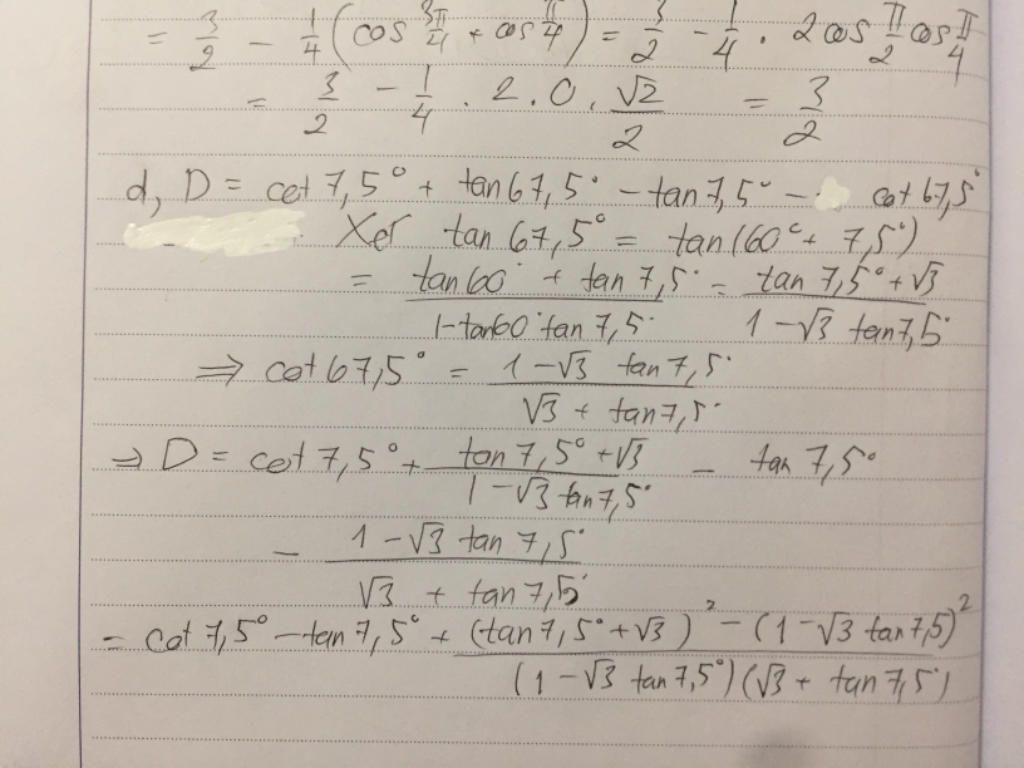 = 3/2 - 1/4 (cos 3π/4 + cos π/4) = 3/2 - 1/4 . 2cos π/2 cos π/4
= 3/2 - 1/4 . 2 . 0 . √2/2 = 3/2
d, D = cot 7,5° + tan 67,5° - tan 7,5° - cot 67,5°
Xét tan 67,5° = tan (60° + 7,5°)
= (tan 60° + tan 7,5°)/(1 - tan 60° tan 7,5°) = (tan 7,5° + √3)/(1 - √3 tan 7,5°)
⇒ cot 67,5° = (1 - √3 tan 7,5°)/(√3 + tan 7,5°)
⇒ D = cot 7,5° + (tan 7,5° + √3)/(1 - √3 tan 7,5°) - tan 7,5°
- (1 - √3 tan 7,5°)/(√3 + tan 7,5°)
= cot 7,5° - tan 7,5° + ((tan 7,5° + √3)² - (1 - √3 tan 7,5)²)/((1 - √3 tan 7,5°)(√3 + tan 7,5°))